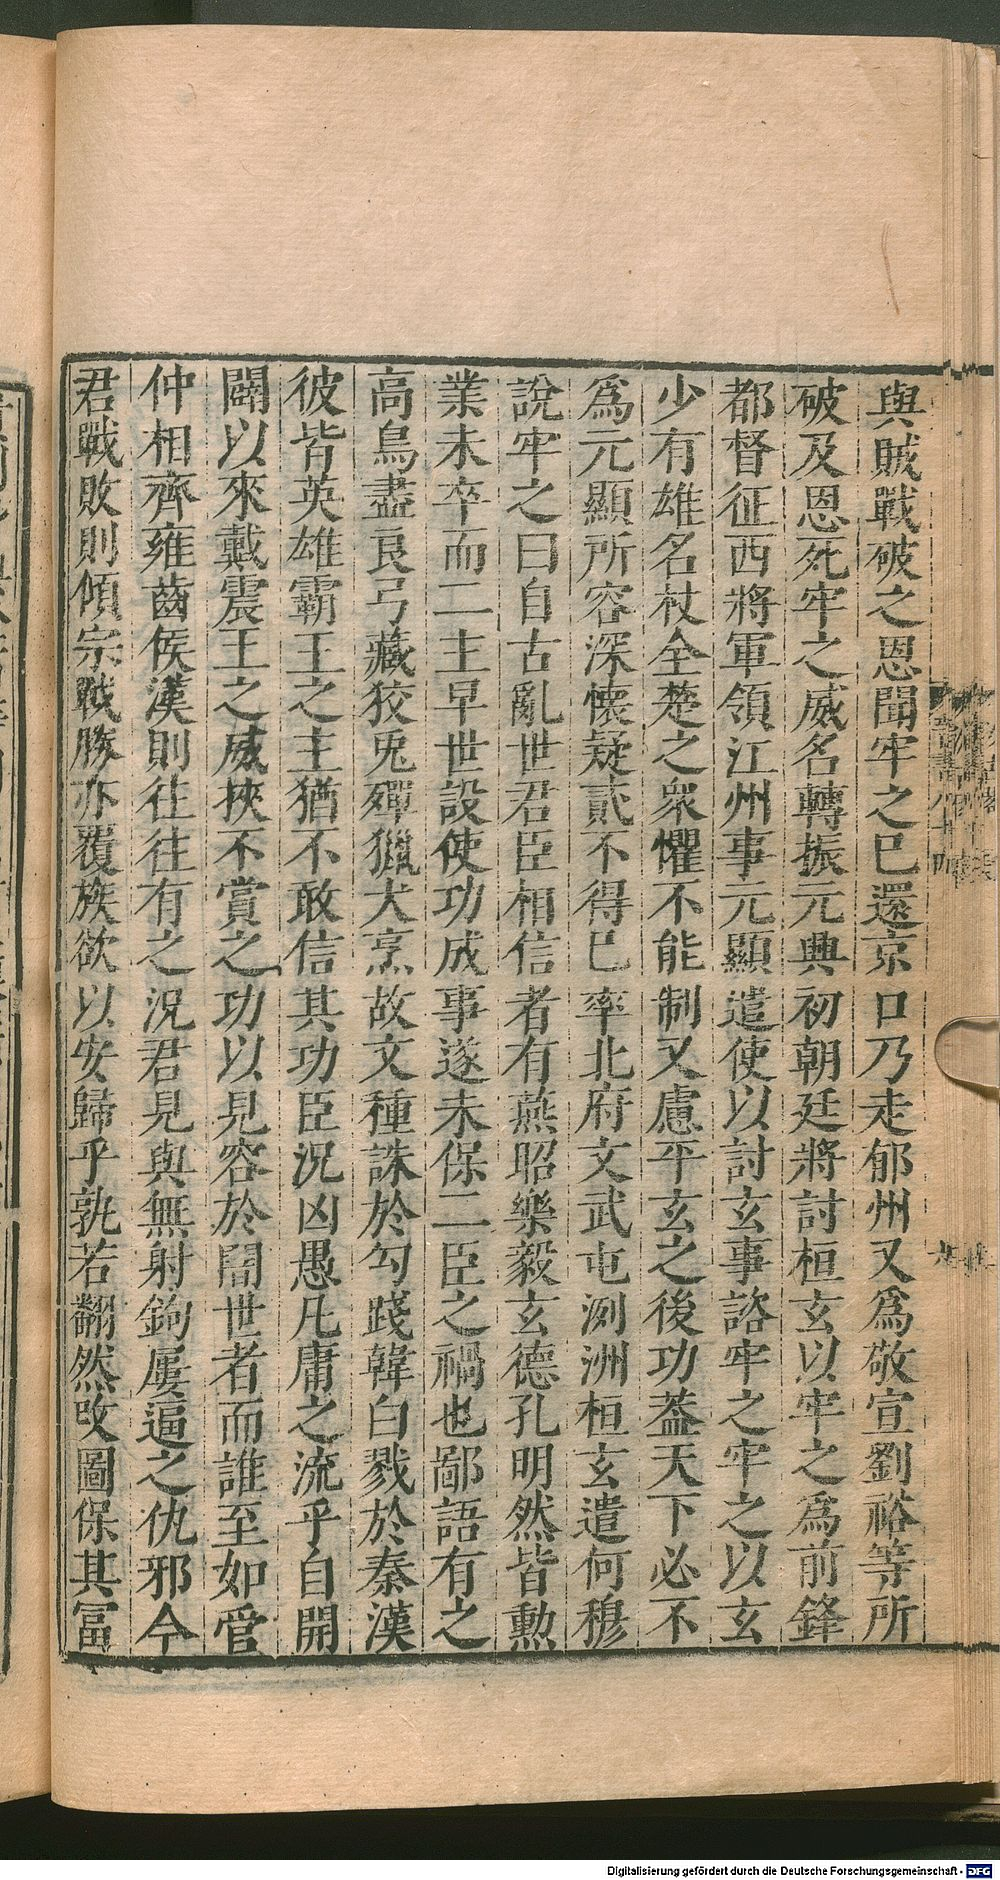 與賊戰破之恩聞牢之已還京口乃走郁州又爲敬宣劉裕等所
破及恩死牢之威名轉振元興初朝廷將討桓玄以牢之爲前鋒
都督征西將軍領江州事元顯遣使以討玄事諮牢之牢之以玄
少有雄名杖全楚之衆懼不能制又慮平玄之後功蓋天下必不
爲元顯所容深懷疑貳不得已率北府文武屯洌洲桓玄遣何穆
說牢之曰自古亂世君臣相信者有燕昭樂毅玄德孔明然皆勲
業未卒而二主早世設使功成事遂未保二臣之禍也鄙語有之
高鳥盡良弓藏狡兎殫獵犬烹故文種誅於勾踐韓白戮於秦漢
彼皆英雄霸王之主猶不敢信其功臣況凶愚凡庸之流乎自開
闢以來戴震王之威挾不賞之功以見容於闇世者而誰至如管
仲相齊雍齒侯漢則往往有之況君見與無射鉤屢逼之仇邪今
君戰敗則傾宗戰勝亦覆族欲以安歸乎孰若翻然改圖保其冨
晉書八十四
Digitalisierung gefördert durch die Deutsche Forschungsgemeinschaft - DFG